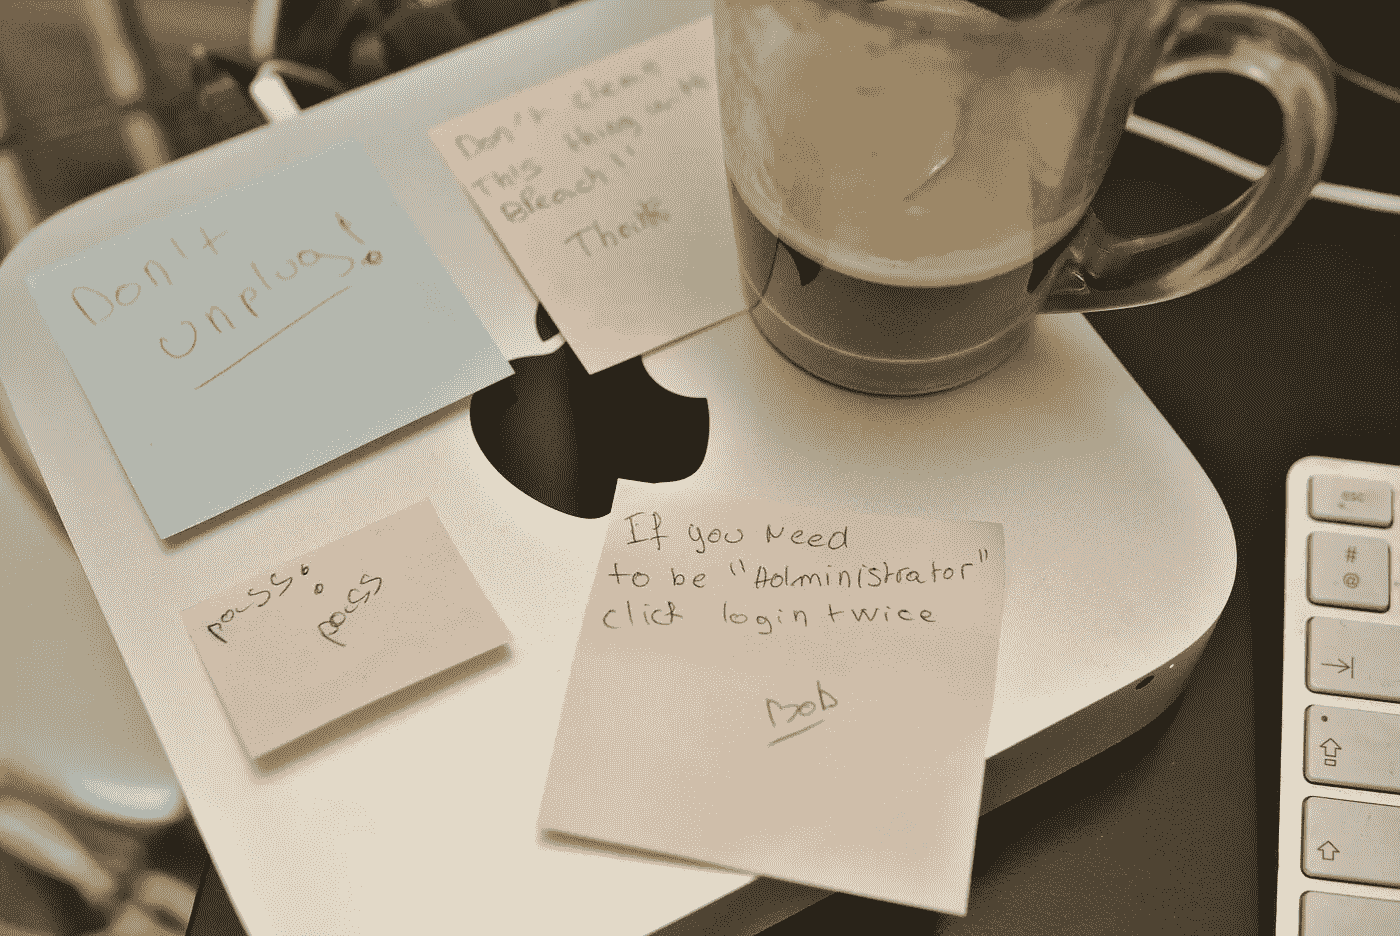 Don't
unplug!
Don't clean
This thing with
Bleach!!
Thank
pass:
pass
If you Need
to be "Administrator"
click login twice
Bob
esc
#
@